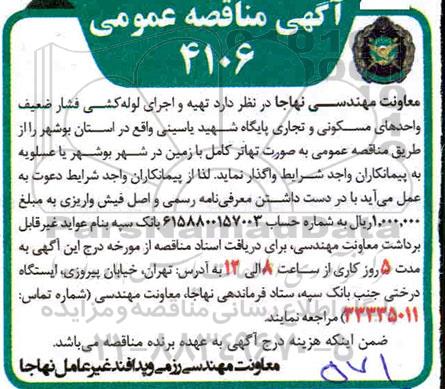 آگهی مناقصه عمومی
۴۱۰۶
معاونت مهندسی نهاجا در نظر دارد تهیه و اجرای لوله‌کشی فشار ضعیف
واحدهای مسکونی و تجاری پایگاه شهید یاسینی واقع در استان بوشهر را از
طریق مناقصه عمومی به صورت تهاتر کامل با زمین در شهر بوشهر یا عسلویه
به پیمانکاران واجد شرایط واگذار نماید. لذا از پیمانکاران واجد شرایط دعوت به
عمل می‌آید با در دست داشتن معرفی‌نامه رسمی و اصل فیش واریزی به مبلغ
۱.۰۰۰.۰۰۰ ریال به شماره حساب ۶۱۵۸۸۰۰۱۵۷۰۰۳ بانک سپه بنام عواید غیرقابل
برداشت معاونت مهندسی، برای دریافت اسناد مناقصه از مورخه درج این آگهی به
مدت ۵ روز کاری از ساعت ۸ الی ۱۲ به آدرس: تهران، خیابان پیروزی، ایستگاه
درختی جنب بانک سپه، ستاد فرماندهی نهاجا، معاونت مهندسی (شماره تماس:
۳۳۳۳۵۰۱۱) مراجعه نمایند.
ضمن اینکه هزینه درج آگهی به عهده برنده مناقصه می‌باشد.
معاونت مهندسی رزمی و پدافند غیرعامل نهاجا
۵۷۱